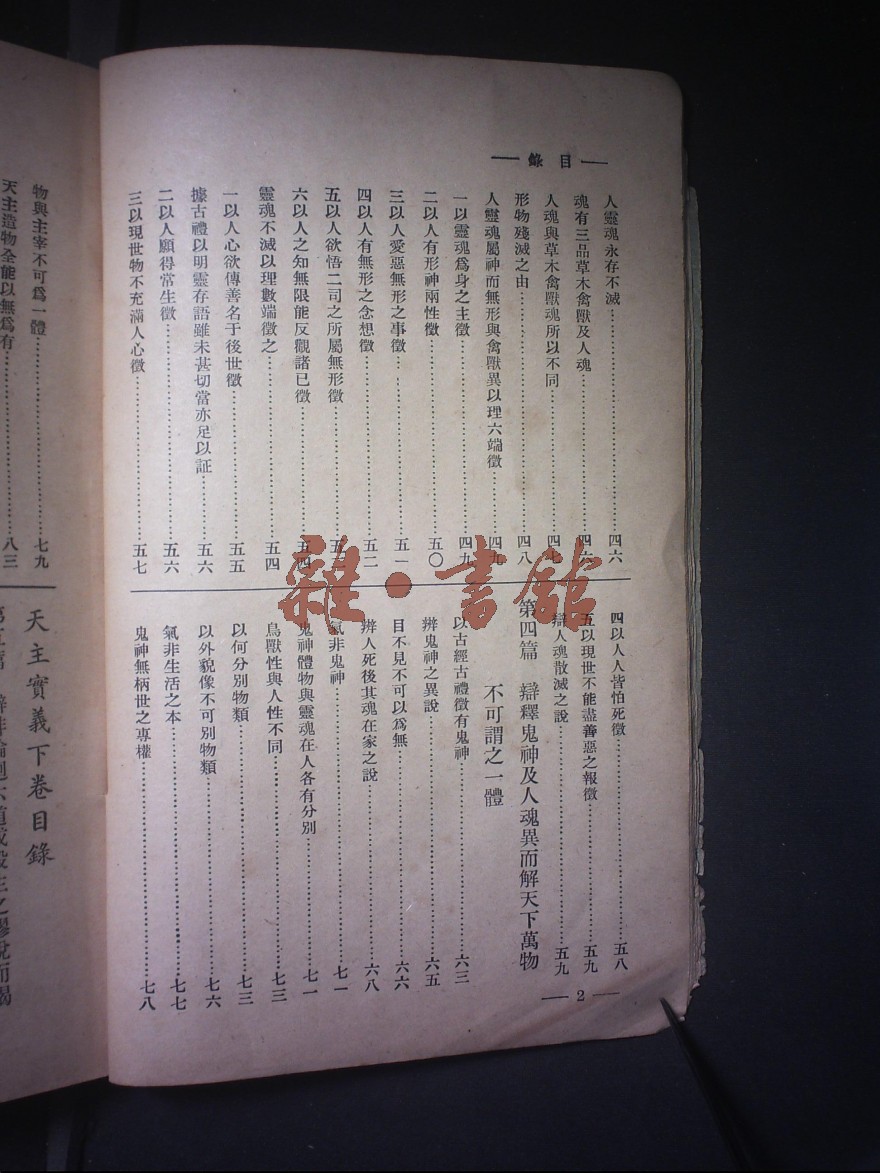 目錄
人靈魂永存不滅 四六
魂有三品草木禽獸及人魂 四六
人魂與草木禽獸魂所以不同 四七
形物殘滅之由 四八
人靈魂屬神而無形與禽獸異以理六端徵 四九
一以靈魂爲身之主徵 四九
二以人有形神兩性徵 五〇
三以人愛惡無形之事徵 五一
四以人有無形之念想徵 五二
五以人欲悟二司之所屬無形徵
六以人之知無限能反觀諸已徵 五四
靈魂不滅以理數端徵之 五四
一以人心欲傳善名于後世徵 五五
據古禮以明靈存語雖未甚切當亦足以証 五六
二以人願得常生徵 五六
三以現世物不充滿人心徵 五七
四以人人皆怕死徵 五八
五以現世不能盡善惡之報徵 五九
辯人魂散滅之說 五九
第四篇 辯釋鬼神及人魂異而解天下萬物
不可謂之一體
以古經古禮徵有鬼神 六三
辨鬼神之異說 六五
目不見不可以爲無 六六
辨人死後其魂在家之說 六八
氣非鬼神 七一
鬼神體物與靈魂在人各有分別 七一
鳥獸性與人性不同 七三
以何分別物類 七三
以外貌像不可別物類 七六
氣非生活之本 七七
鬼神無柄世之專權 七八
2
物與主宰不可爲一體 七九
天主造物全能以無爲有 八三
天主實義下卷目錄
雜·書館